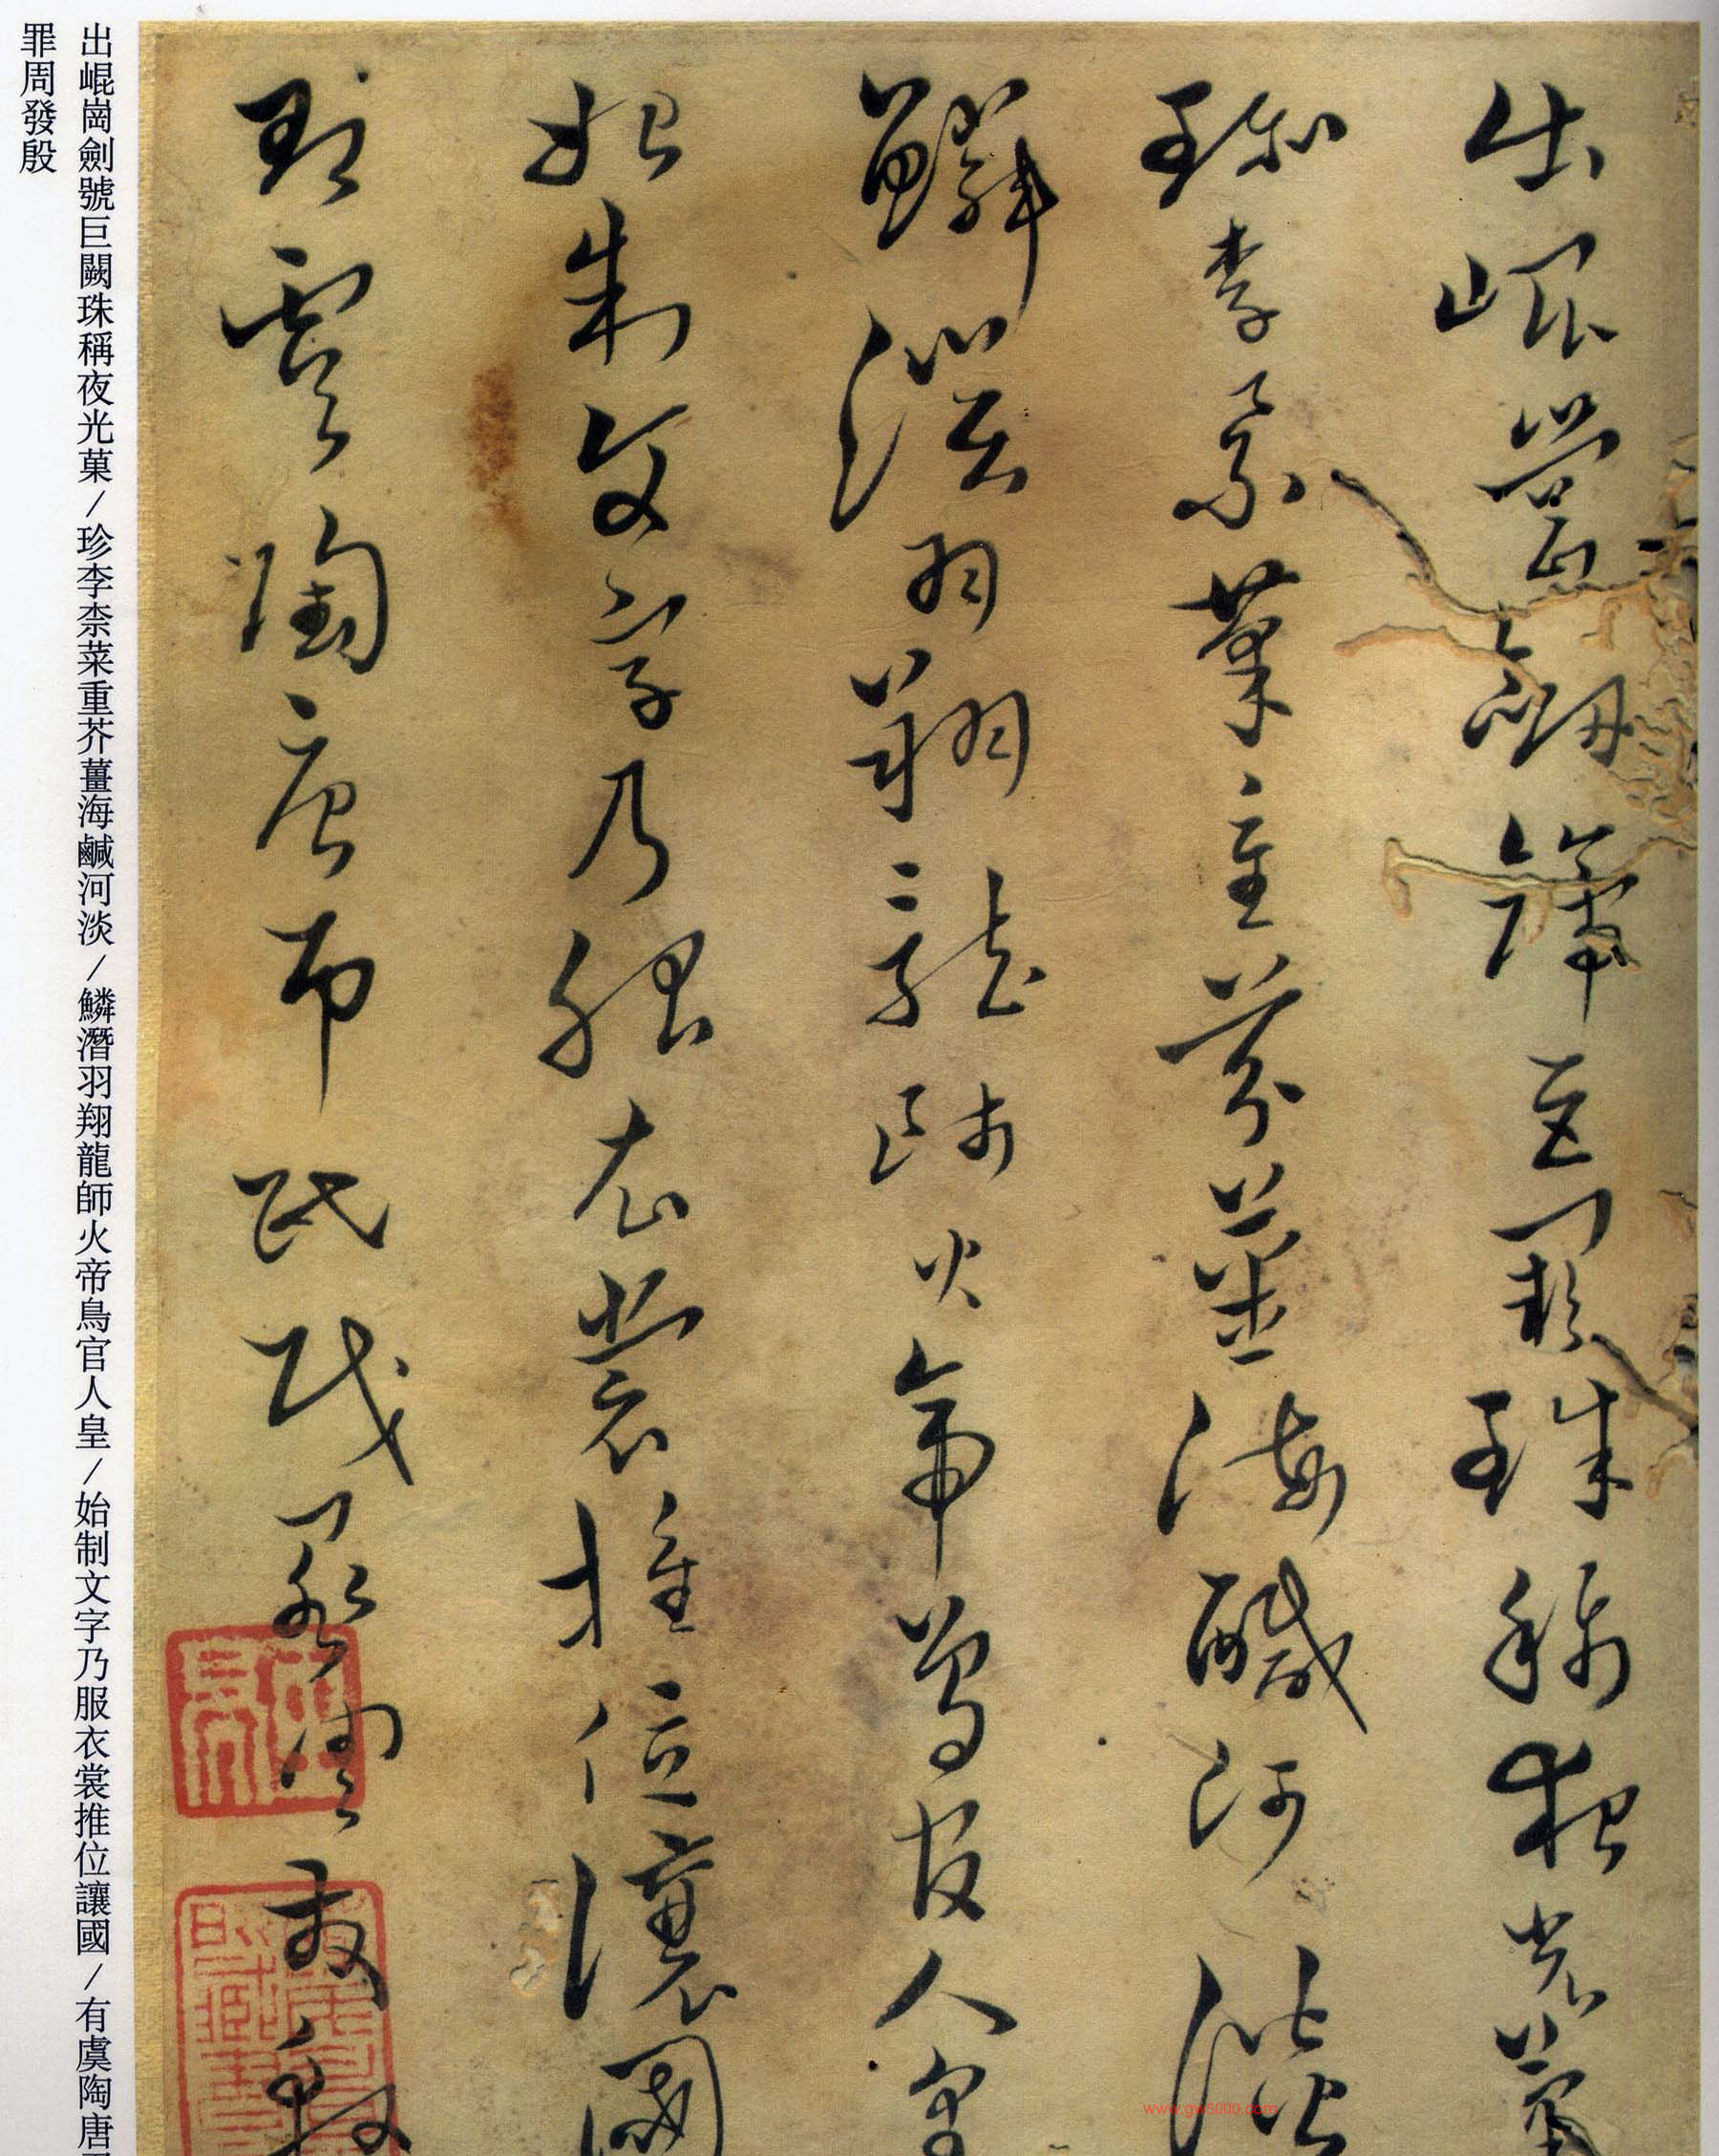 出崐崗劍號巨闕珠稱夜光菓
珍李柰菜重芥薑海鹹河淡
鱗潛羽翔龍師火帝鳥官人皇
始制文字乃服衣裳推位讓國
有虞陶唐弔民伐罪周發殷
出崐崗劍號巨闕珠稱夜光菓/珍李柰菜重芥薑海鹹河淡/鱗潛羽翔龍師火帝鳥官人皇/始制文字乃服衣裳推位讓國/有虞陶唐
罪周發殷
www.gw5000.com